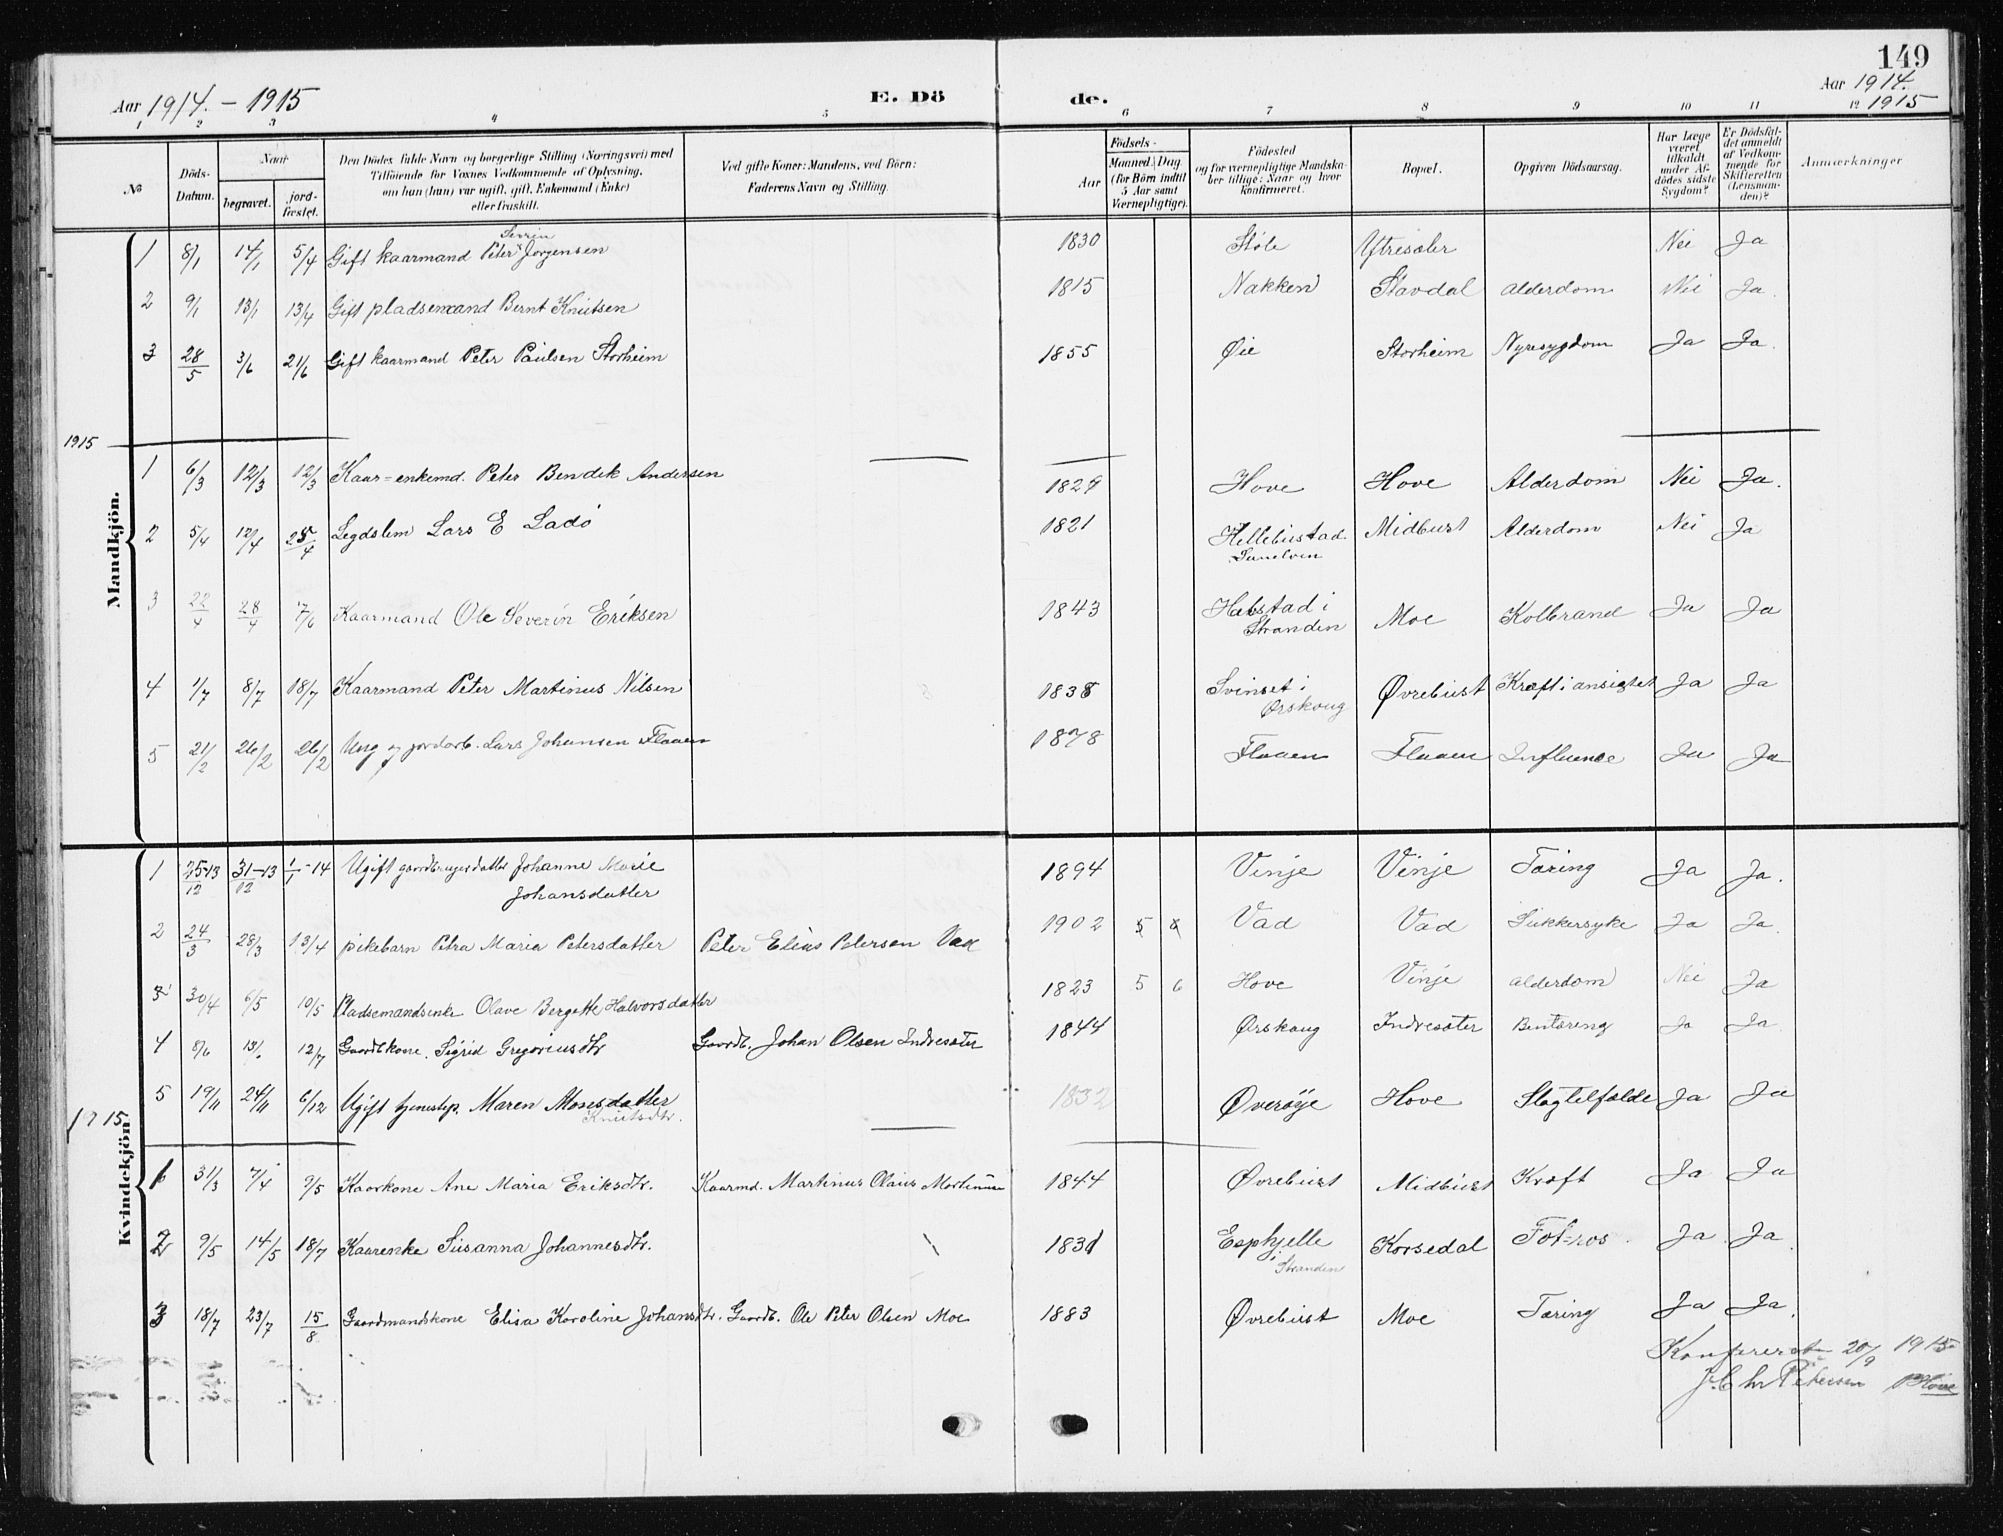 149
Aar 1914. - 1915 E. Dö de. Aar 1914. 1915
1 2 3 4 5 6 7 8 9 10 11 12
No
Döds-Datum.
Naar
begravet.
jord-fæstet.
Den Dödes fulde Navn og borgerlige Stilling (Næringsvei) med
Tilföiende for Voxnes Vedkommende af Oplysning,
om han (hun) var ugift, gift, Enkemand (Enke)
eller fraskilt.
Ved gifte Koner: Mandens, ved Börn:
Faderens Navn og Stilling.
Födsels-
Aar
Maaned. Dag
(for Börn indtil
5 Aar samt
Værnepligtige).
Födested
og for værnepligtige Mandska-
ber tillige: Naar og hvor
konfirmeret.
Bopæl.
Opgiven Dödsaarsag.
Har Læge
været
tilkaldt
under Af-
dödes sidste
Sygdom?
Er Dödsfal-
det anmeldt
af Vedkom-
mende for
Skifteretten
(Lensman-
den)?
Anmærkninger
Mandkjön.
Sevrin
1 8/1 14/1 5/4 Gift kaarmand Peter Jørgensen 1830 Støle Ytresæter Nei Ja
2 9/1 13/1 13/4 Gift pladsemand Bernt Knutsen 1815 Nakken Stavdal Alderdom Nei Ja.
3 28/5 3/6 21/6 Gift kaarmand Peter Paulsen Storheim 1855 Øie Storheim Nyresygdom Ja Ja.
1915
1 6/3 12/3 12/3 Kaar=enkemd. Peter Bendik Andersen 1829 Hove Hove Alderdom Nei Ja.
2 5/4 12/4 25/4 Legdslem Lars E Ladö 1821 Hellebustad Sunelven Midbust Alderdom Nei Ja
3 22/4 28/4 7/6 Kaarmand Ole Severin Eriksen 1843 Habstad i Stranden Moe Kolbrand Ja Ja
4 1/7 8/7 18/7 Kaarmand Peter Martinus Nilsen 1838 Svinset i Ørskoug Øvrebust Kræft i ansigtet Ja Ja
5 21/2 26/2 26/2 Ung g jordarb. Lars Johansen Flaaen 1878 Flaaen Flaaen Influence Ja Ja
Kvindekjön.
1 25-13/12 31-13/12 1/1-14 Ugift gaardbrugerdatter Johanne Marie
Johansdatter 1894 Vinje Vinje Tæring Ja Ja.
2 24/3 28/3 13/4 pikebarn Petra Maria Petersdatter Peter Elias Petersen Vad 1902 5 6 Vad Vad Sukkersyke Ja Ja.
3 30/4 6/5 10/5 Pladsemandsenke Olave Bergette Halvorsdatter 1823 5 6 Hove Vinje Alderdom Nei Ja
4 8/6 13/6 12/7 Gaardbkone. Sigrid Gregoriusdtr Gaardb. Johan Olsen Indresæter 1844 Ørskoug Indresæter Bentæring Ja Ja.
5 19/11 24/11 6/12 Ugift tjenestep. Maren Monsdatter 1832 Øverøye Hove Slagtilfælde Ja Ja
Knutsdtr.
1915
1 31/3 7/4 9/5 Kaarkone Ane Maria Eriksdtr. Kaarmd. Martinus Olaus Martinusen 1844 Øvrebust Midbust Kræft Ja Ja
2 9/5 14/5 18/7 Kaarenke Susanna Johannesdtr. 1831 Esphjelle i Stranden Korsedal Fot=ros. Ja Ja.
3 18/7 23/7 15/8 Gaardmandskone Elisa Karoline Johansdtr. Gaardb. Ole Peter Olsen Moe 1883 Øvrebust Moe Tæring Ja Ja.
Konfereret 20/9 1915
J. Chr Petersen